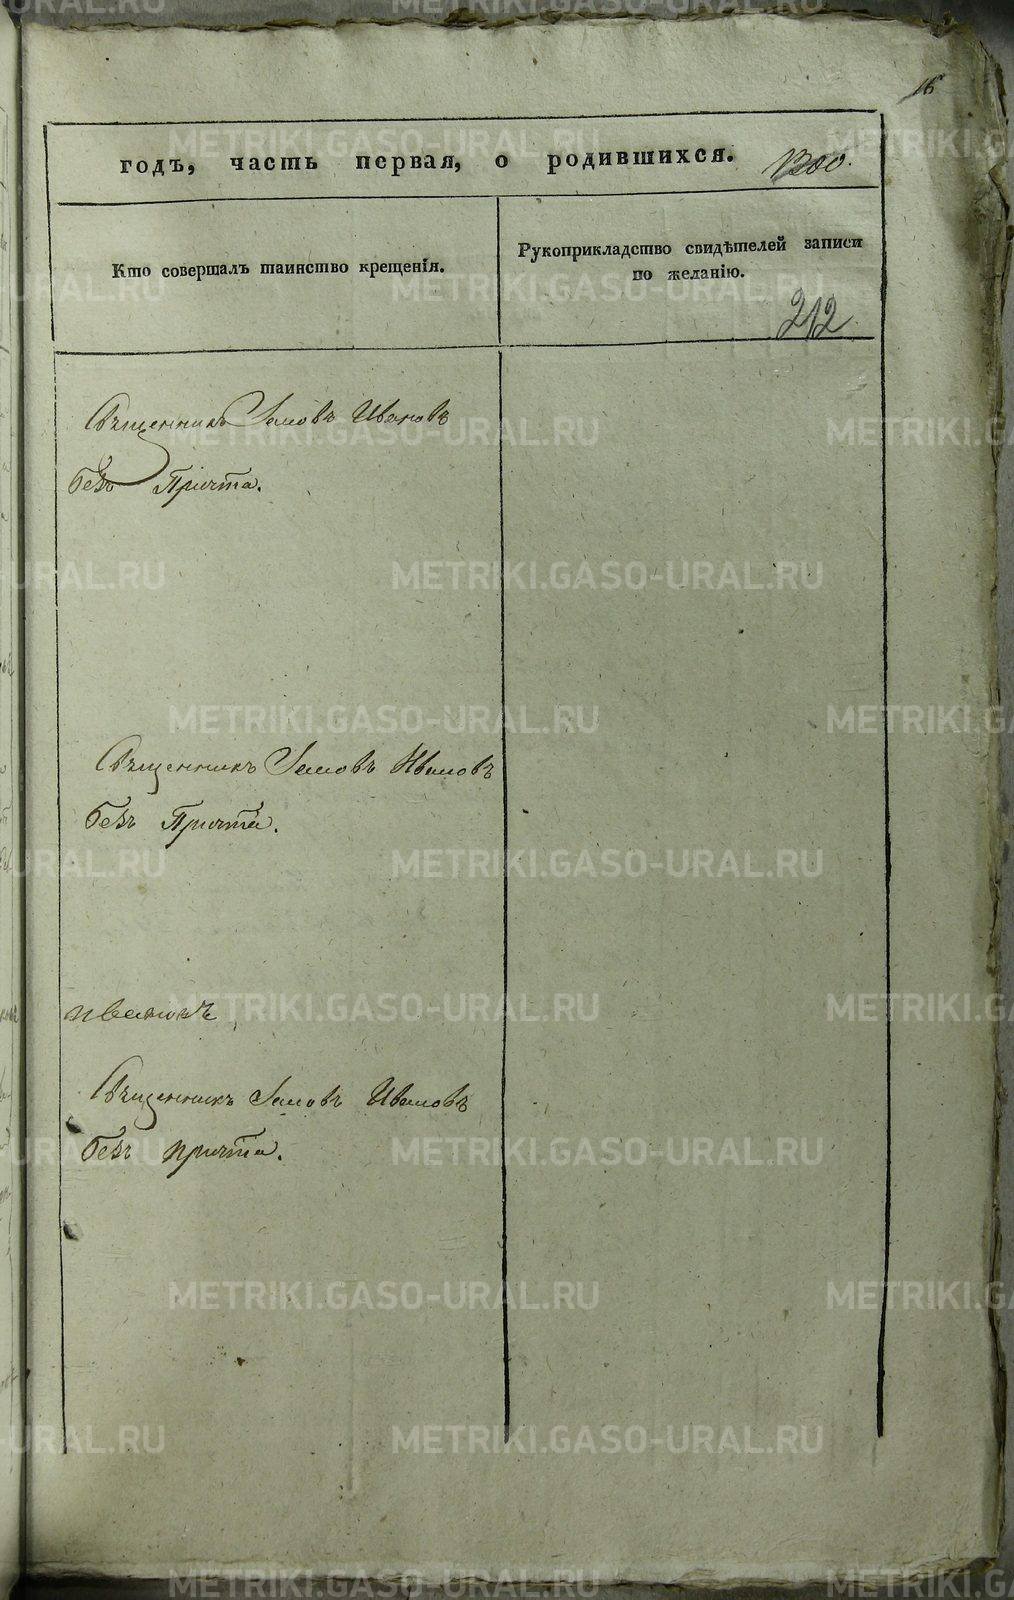 16
годъ, часть первая, о родившихся. 1300.
Кто совершалъ таинство крещенія.
Рукоприкладство свидѣтелей записи
по желанію.
212
Священникъ Іаковъ Ивановъ
безъ Причта.
Священникъ Іаковъ Ивановъ
безъ Причта.
Священникъ Іаковъ Ивановъ
безъ причта.
METRIKI.GASO-URAL.RU